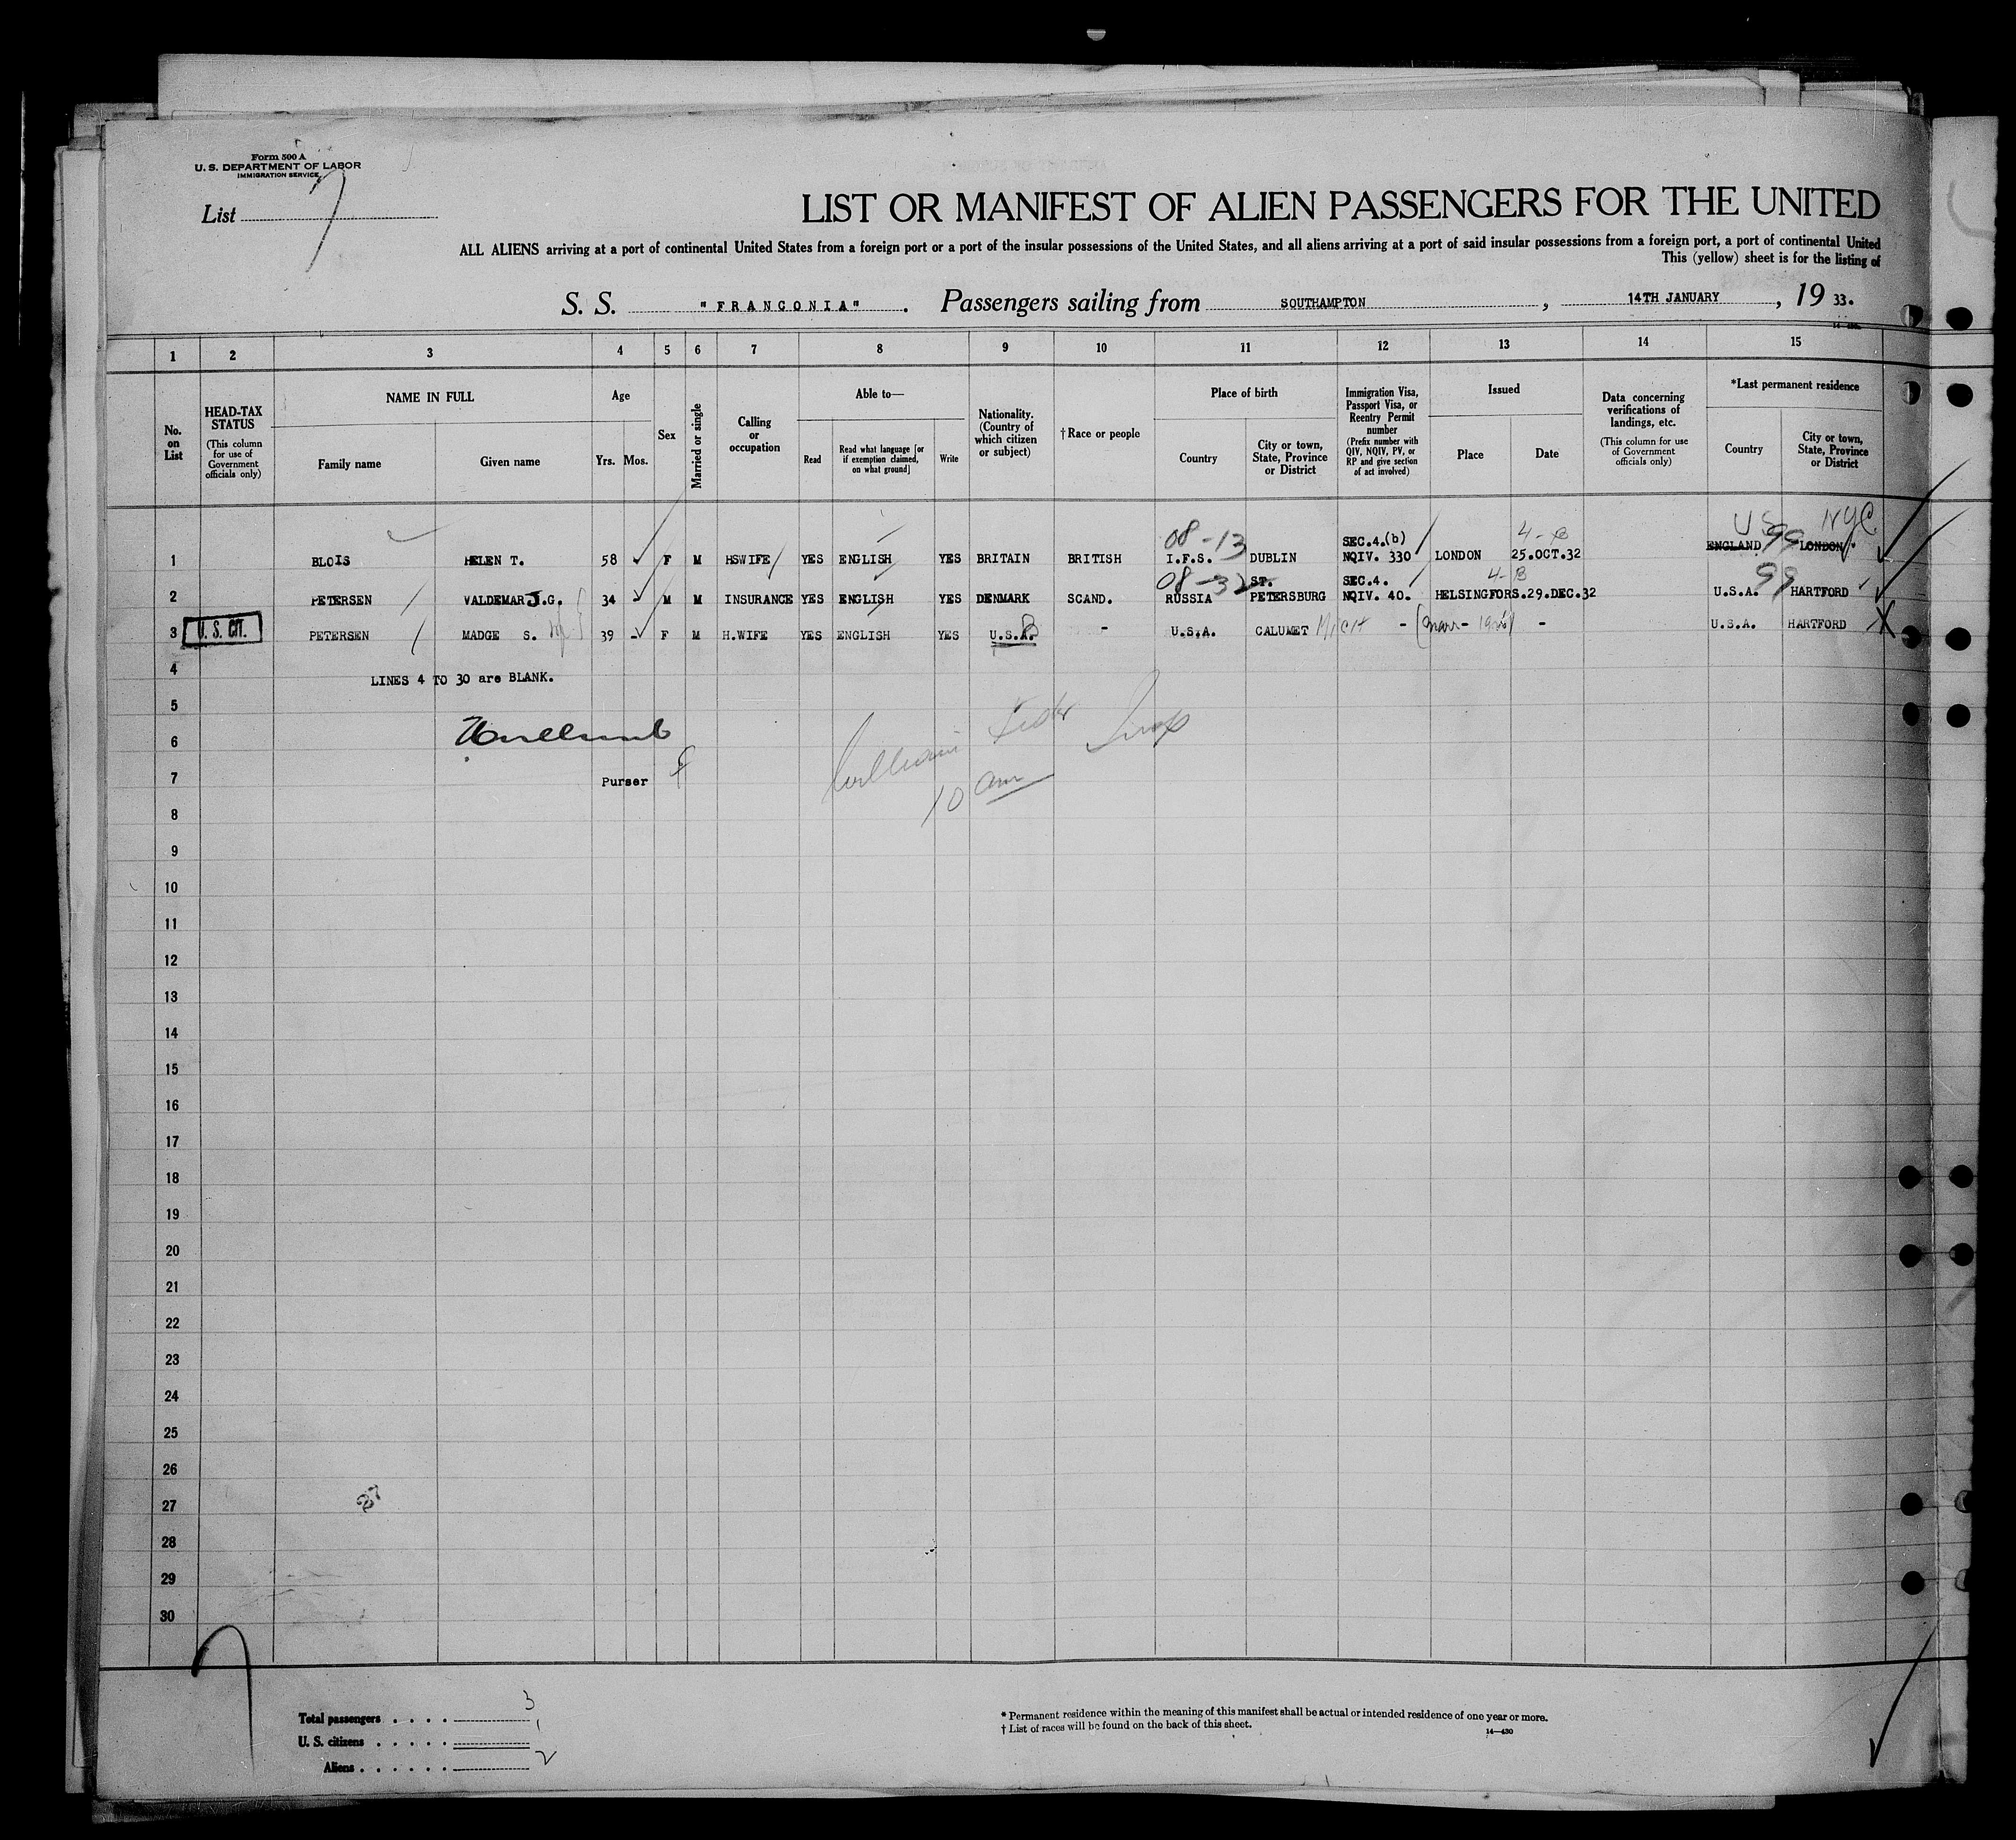 Form 500 A
U. S. DEPARTMENT OF LABOR
IMMIGRATION SERVICE
List 7
LIST OR MANIFEST OF ALIEN PASSENGERS FOR THE UNITED
ALL ALIENS arriving at a port of continental United States from a foreign port or a port of the insular possessions of the United States, and all aliens arriving at a port of said insular possessions from a foreign port, a port of continental United
This (yellow) sheet is for the listing of
S. S. "FRANCONIA". Passengers sailing from SOUTHAMPTON, 14TH JANUARY, 19 33.
1 2 3 4 5 6 7 8 9 10 11 12 13 14 15
No. on List
HEAD-TAX STATUS (This column for use of Government officials only)
NAME IN FULL
Family name
Given name
Age
Yrs. Mos.
Sex
Married or single
Calling or occupation
Able to—
Read
Read what language [or if exemption claimed, on what ground]
Write
Nationality. (Country of which citizen or subject)
†Race or people
Place of birth
Country
City or town, State, Province or District
Immigration Visa, Passport Visa, or Reentry Permit number (Prefix number with QIV, NQIV, PV, or RP and give section of act involved)
Issued
Place
Date
Data concerning verifications of landings, etc. (This column for use of Government officials only)
*Last permanent residence
Country
City or town, State, Province or District
08-13 SEC.4.(b) 4-B U S 99 NYC
1 BLOIS HELEN T. 58 F M HSWIFE YES ENGLISH YES BRITAIN BRITISH I.F.S. DUBLIN NQIV. 330 LONDON 25.OCT.32 ENGLAND LONDON.
08-32 ST. SEC.4. 4-B 99
2 PETERSEN VALDEMAR J.G. 34 - M M INSURANCE YES ENGLISH YES DENMARK SCAND. RUSSIA PETERSBURG NQIV. 40. HELSINGFORS.29.DEC.32 U.S.A. HARTFORD
3 U. S. CIT. PETERSEN MADGE S. 39 - F M H.WIFE YES ENGLISH YES U.S.A. - U.S.A. CALUMET MICH - - U.S.A. HARTFORD X
4 LINES 4 TO 30 are BLANK.
5
6
7 Purser
10 am
8
9
10
11
12
13
14
15
16
17
18
19
20
21
22
23
24
25
26
27 27
28
29
30
7
Total passengers . . . . . 3
U. S. citizens . . . . . 1
Aliens . . . . . . 2
* Permanent residence within the meaning of this manifest shall be actual or intended residence of one year or more.
† List of races will be found on the back of this sheet.
14—430